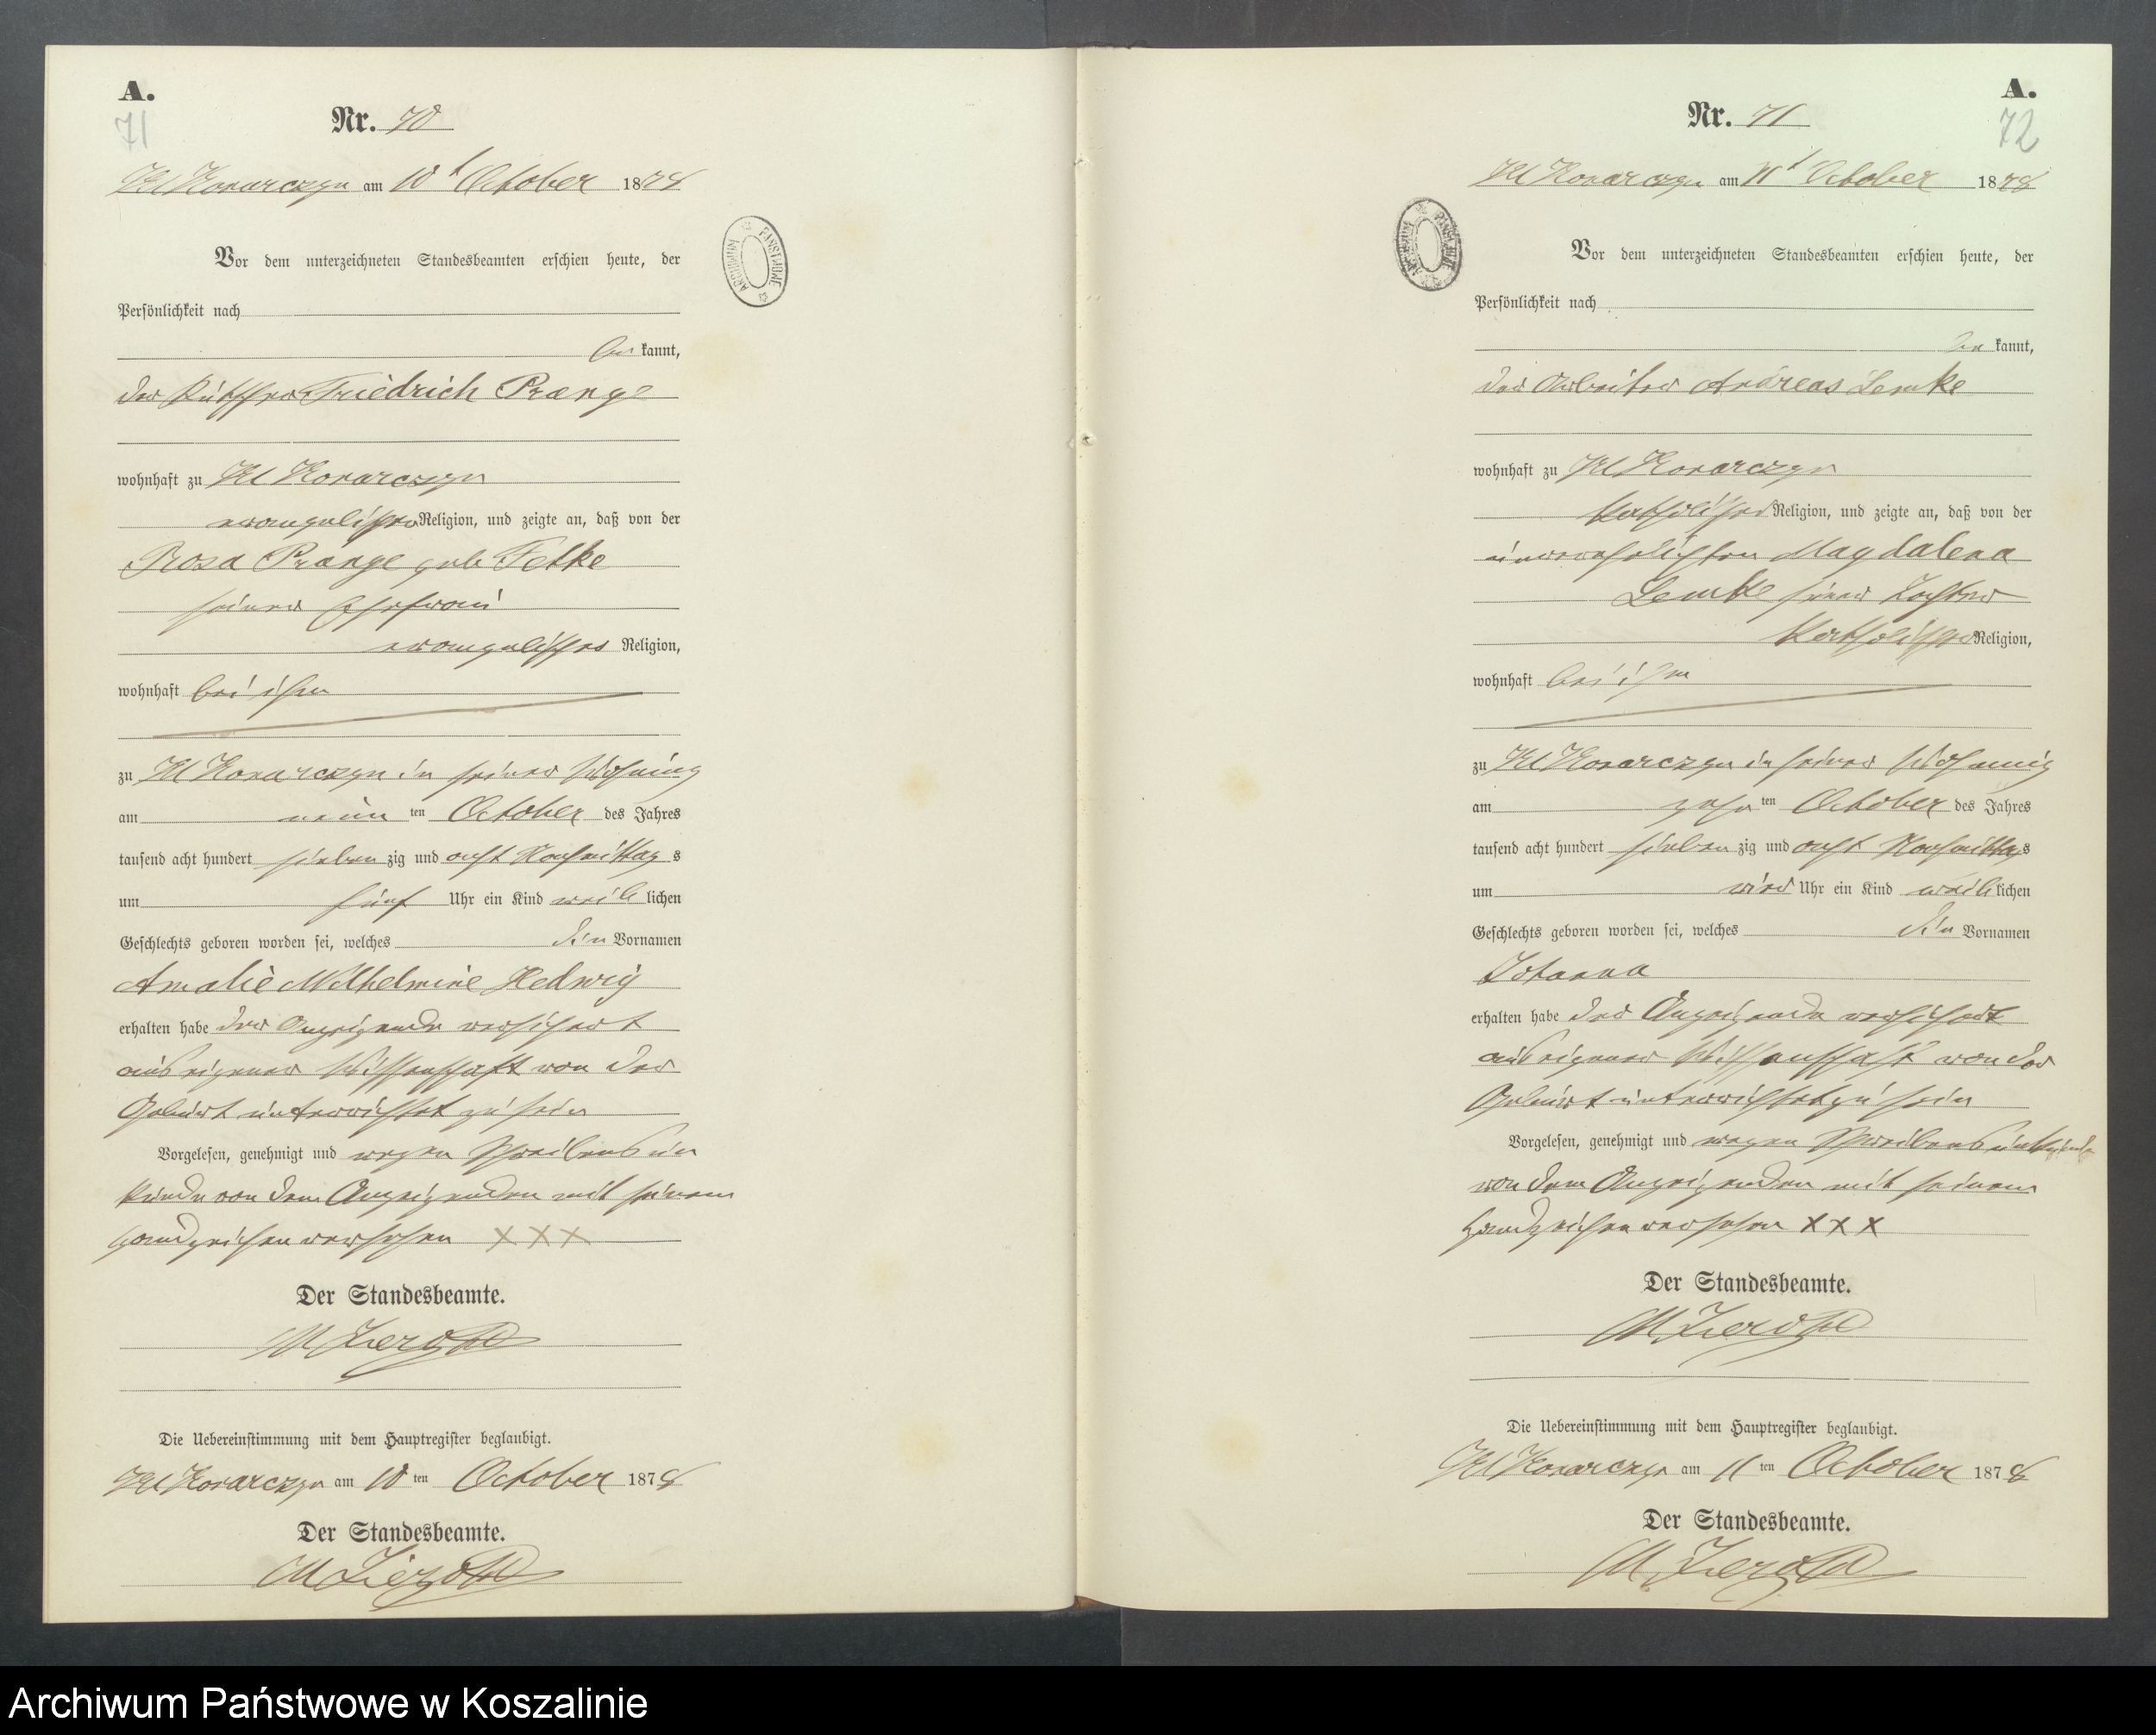 A.
71
Nr. 70
Kl Konarczyn am 10t October 1878
Vor dem unterzeichneten Standesbeamten erschien heute, der
Persönlichkeit nach
be kannt,
der Kutscher Friedrich Prange
wohnhaft zu Kl Konarczyn
evangelischer Religion, und zeigte an, daß von der
Rosa Prange geb Felke
seiner Ehefrau
evangelischer Religion,
wohnhaft bei ihm
zu Kl Konarczyn in seiner Wohnung
am neun ten October des Jahres
tausend acht hundert sieben zig und acht Nachmittag s
um fünf Uhr ein Kind weib lichen
Geschlechts geboren worden sei, welches die Vornamen
Amalie Wilhelmine Hedwig
erhalten habe der Anzeigende versichert
aus eigener Wissenschaft von der
Geburt unterrichtet zu sein
Vorgelesen, genehmigt und wegen Schreibens un
kunde von dem Anzeigenden mit seinem
Handzeichen versehen XXX
Der Standesbeamte.
Die Uebereinstimmung mit dem Hauptregister beglaubigt.
Kl Konarczyn am 10 ten October 1878
Der Standesbeamte.
ARCHIWUM PAŃSTWOWE
A.
72
Nr. 71
Kl Konarczyn am 11t October 1878
Vor dem unterzeichneten Standesbeamten erschien heute, der
Persönlichkeit nach
be kannt,
der Arbeiter Andreas Lemke
wohnhaft zu Kl Konarczyn
katholischer Religion, und zeigte an, daß von der
unverehelichten Magdalena
Lemke seiner Tochter
katholischer Religion,
wohnhaft bei ihm
zu Kl Konarczyn in seiner Wohnung
am zehn ten October des Jahres
tausend acht hundert sieben zig und acht Nachmittag s
um vier Uhr ein Kind weib lichen
Geschlechts geboren worden sei, welches die Vornamen
Johanna
erhalten habe der Anzeigende versichert
aus eigener Wissenschaft von der
Geburt unterrichtet zu sein
Vorgelesen, genehmigt und wegen Schreibensunkunde
von dem Anzeigenden mit seinem
Handzeichen versehen XXX
Der Standesbeamte.
Die Uebereinstimmung mit dem Hauptregister beglaubigt.
Kl Konarczyn am 11 ten October 1878
Der Standesbeamte.
ARCHIWUM PAŃSTWOWE
Archiwum Państwowe w Koszalinie